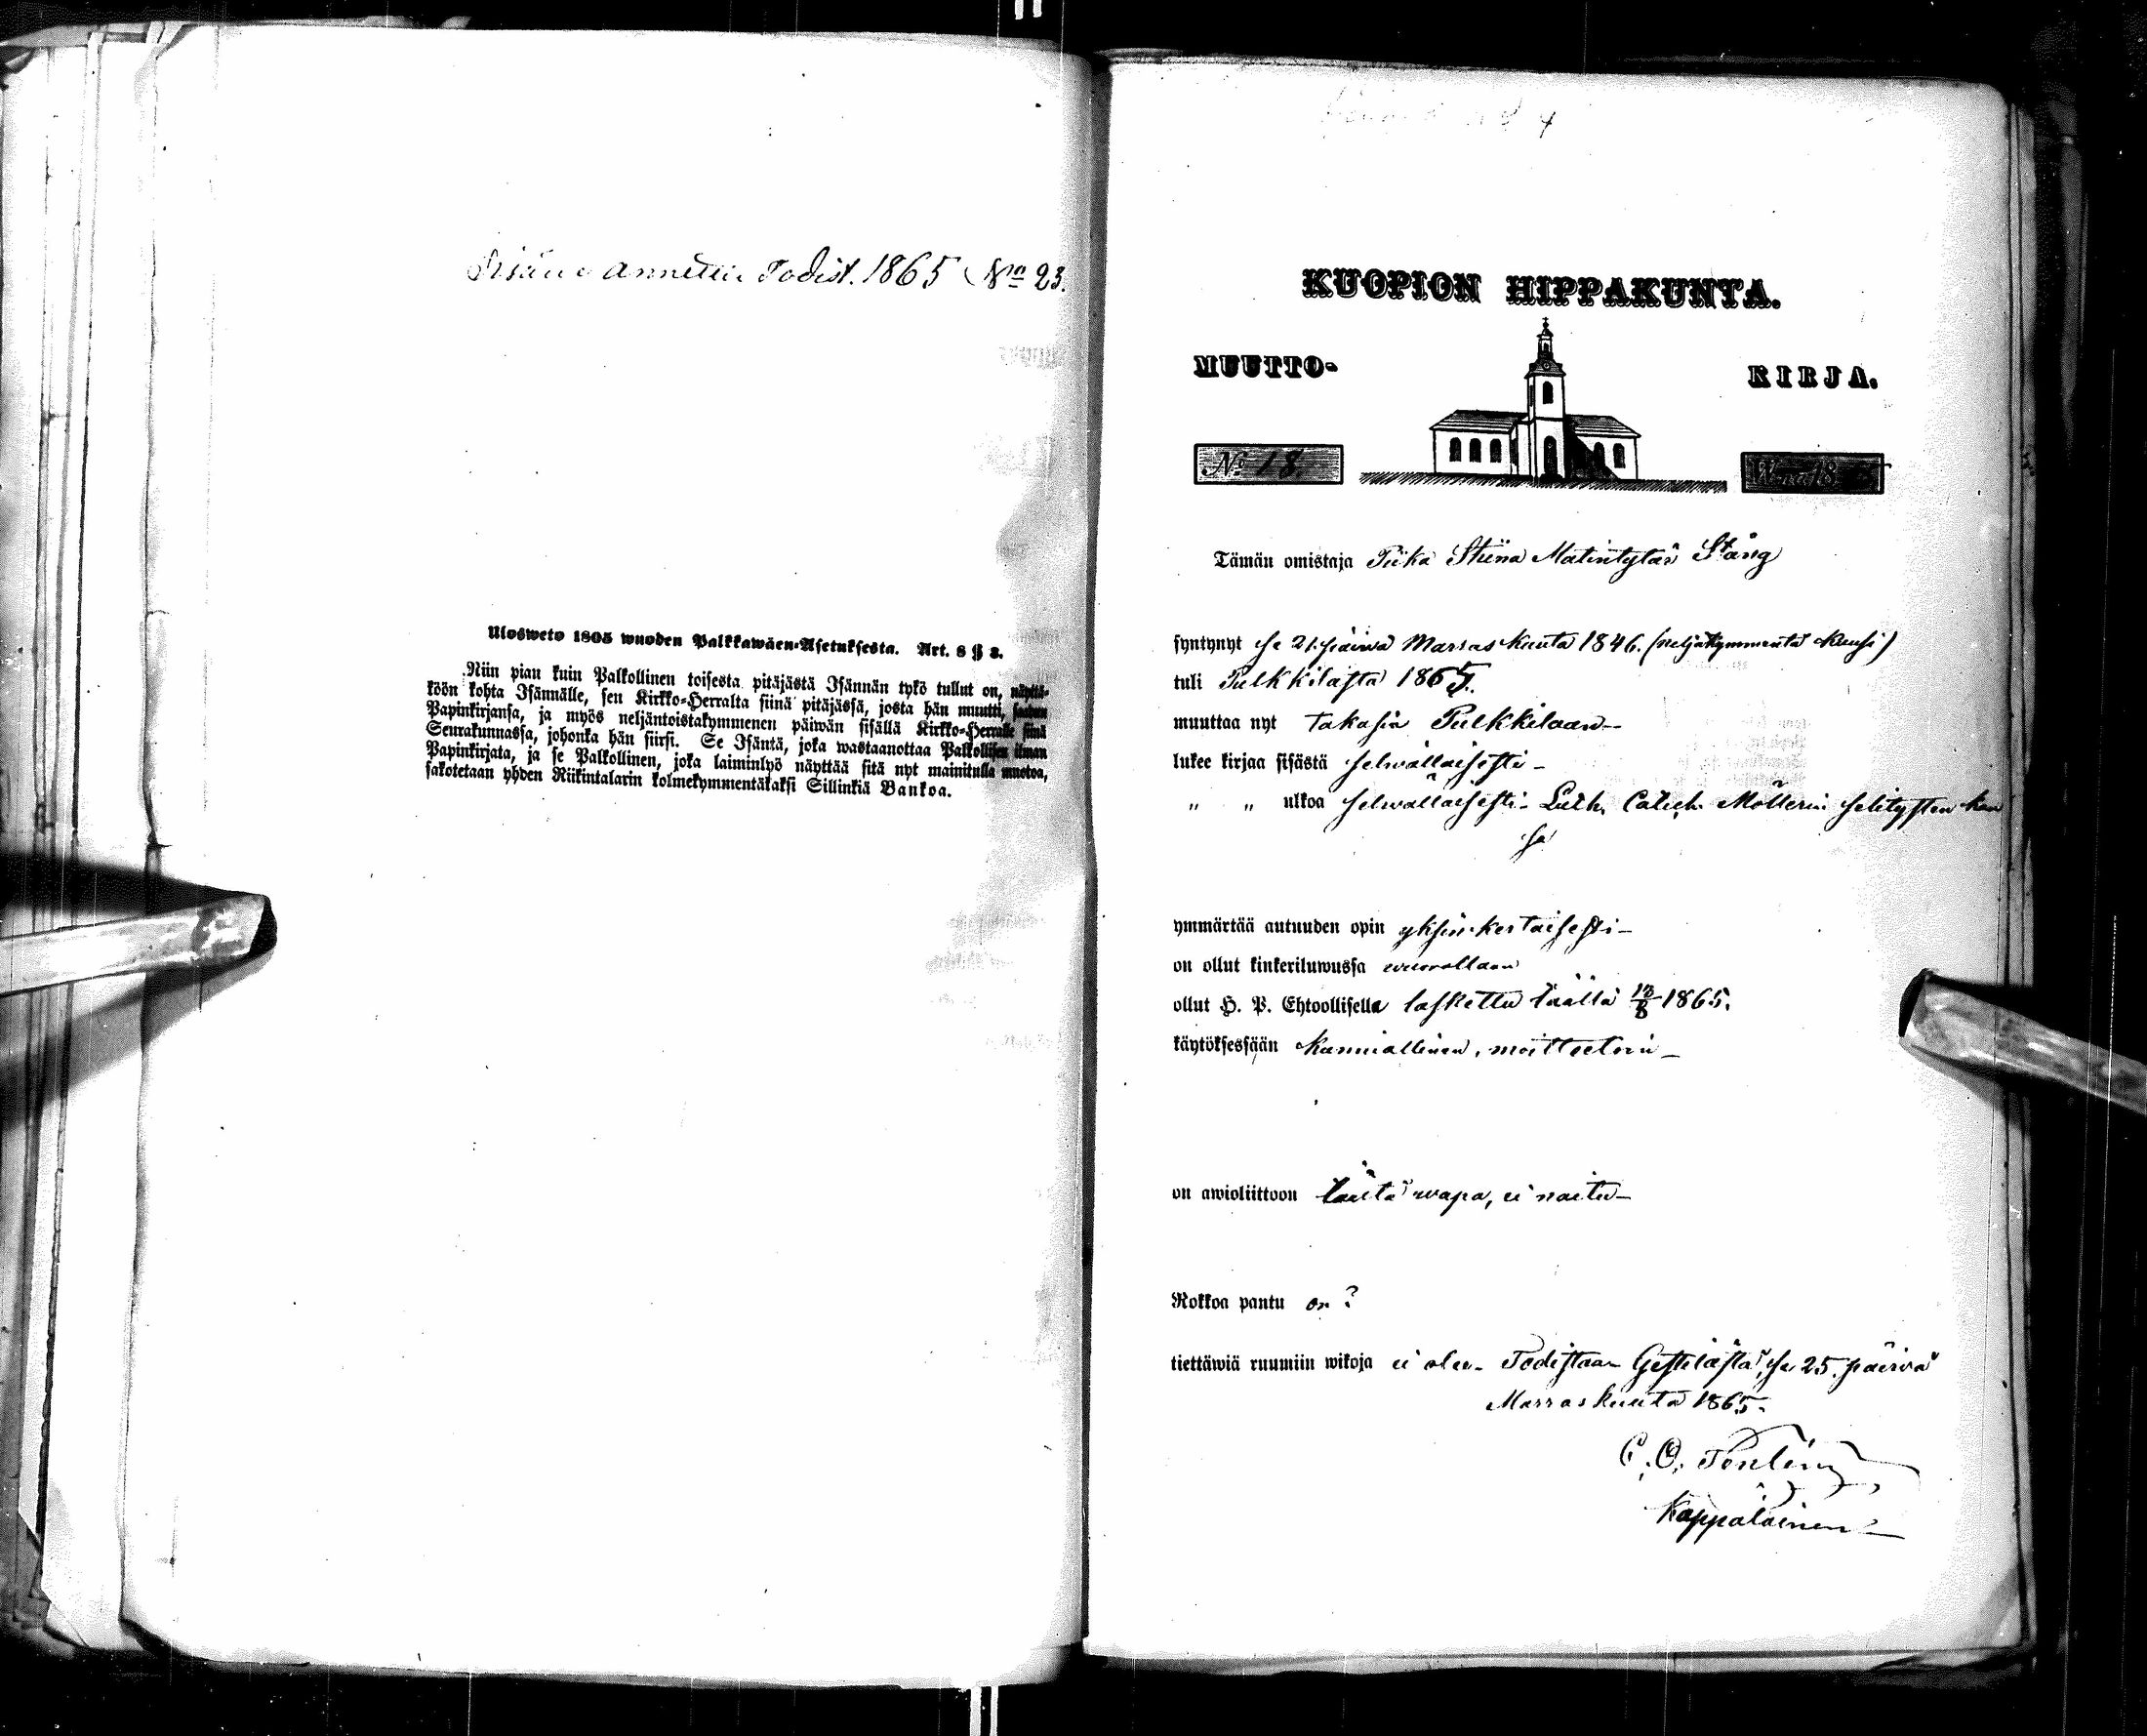 annettu Todist. 1865 No 23.
Ulosweto 1805 wuoden Palkkawäen-Asetuksesta. Art. 8 § 3.
Niin pian kuin Palkollinen toisesta pitäjästä Isännän tykö tullut on, näyttä-
köön kohta Isännälle, sen Kirkko-Herralta siinä pitäjässä, josta hän muutti, saadun
Papinkirjansa, ja myös neljäntoistakymmenen päiwän sisällä Kirkko-Herralle siinä
Seurakunnassa, johonka hän siirsi. Se Isäntä, joka wastaanottaa Palkollisen ilman
Papinkirjata, ja se Palkollinen, joka laiminlyö näyttää sitä nyt mainitulla muotoa,
sakotetaan yhden Riikintalarin kolmekymmentäkaksi Sillinkiä Bankoa.
KUOPION HIPPAKUNTA.
MUUTTO- KIRJA.
No 18. Wuna 18
Tämän omistaja Piika Stiina Matintytär Stång
syntynyt se 21. päiwä Marraskuuta 1846. (neljäkymmentä kuusi)
tuli Pulkkilasta 1865.
muuttaa nyt takasin Pulkkilaan-
lukee kirjaa sisästä selwällaisesti-
" " ulkoa selwällaisesti- Luth. Catech. Möllerin selitysten kan
sa
ymmärtää autuuden opin yksinkertaisesti-
on ollut kinkeriluwussa wuorollaan
ollut H. P. Ehtoollisella laskettu täällä 13/8 1865.
käytöksessään kunniallinen, moitteetoin-
on awioliittoon täältä wapa, ei naitu-
Rokkoa pantu on?
tiettäwiä ruumiin wikoja ei ole- Todistaan Gestilästä, se 25. päiwä
Marraskuuta 1865.
C. O.
Kappalainen